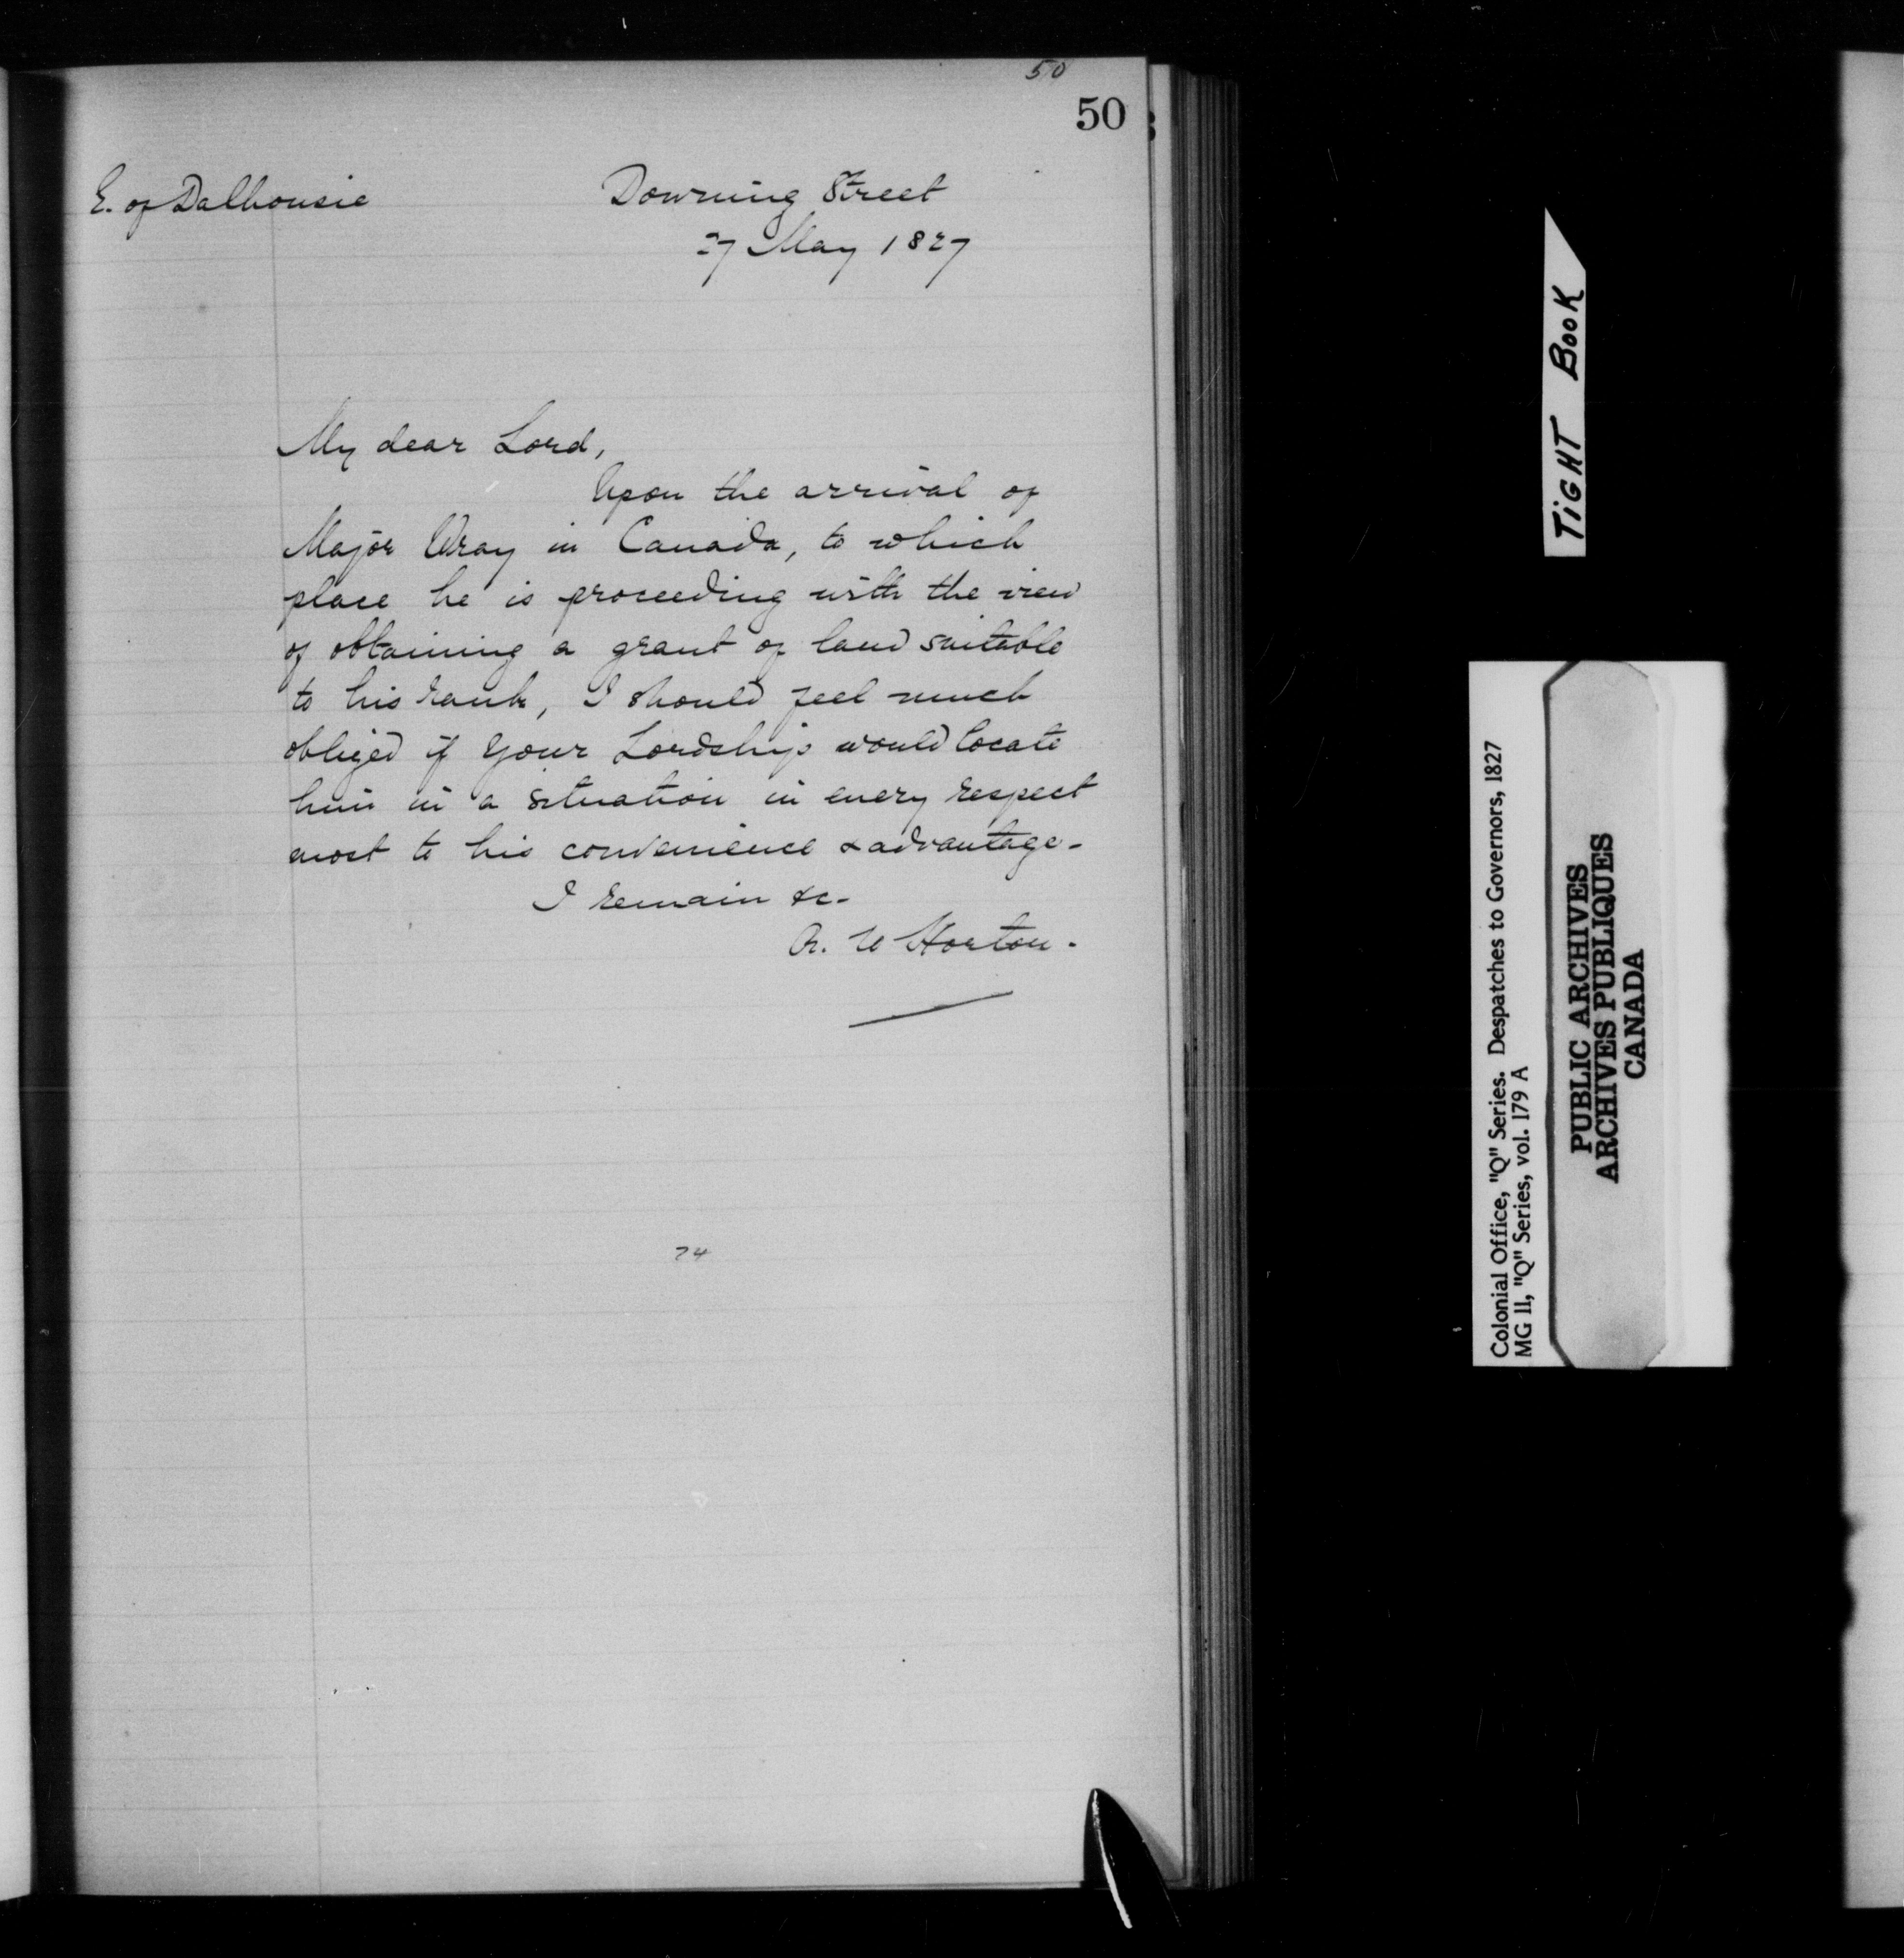 50
50
E. of Dalhousie
Downing Street
27 May 1827
My dear Lord,
Upon the arrival of
Major Wray in Canada, to which
place he is proceeding with the view
of obtaining a grant of land suitable
to his rank, I should feel much
obliged if Your Lordship would locate
him in a situation in every respect
most to his convenience & advantage.
I remain &c.
R. W Horton.
74
TIGHT BOOK
Colonial Office, "Q" Series. Despatches to Governors, 1827
MG 11, "Q" Series, vol. 179 A
PUBLIC ARCHIVES
ARCHIVES PUBLIQUES
CANADA